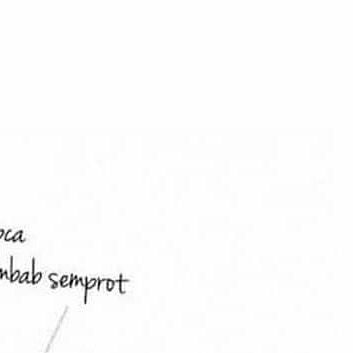 oca
mbab semprot